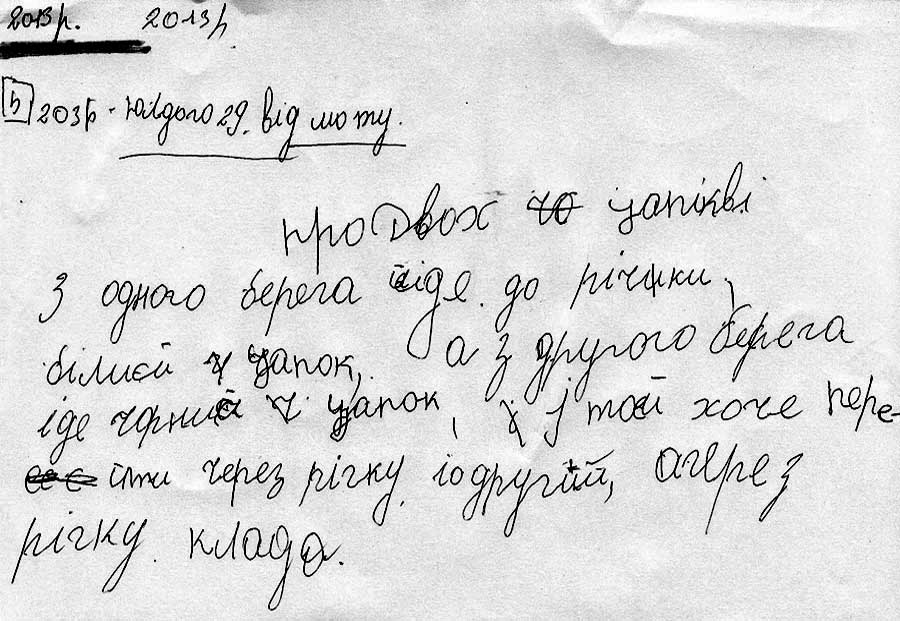 2013р. 2013р.
5 203р. Юлдого 29. від моту.
про Двох цапікві
З одного берега іде до річчки,
білиєй цапок, а з другого берега
іде чорний цапок, і той хоче пере-
їти через річку. і о другий, ачерез
річку. кладо.